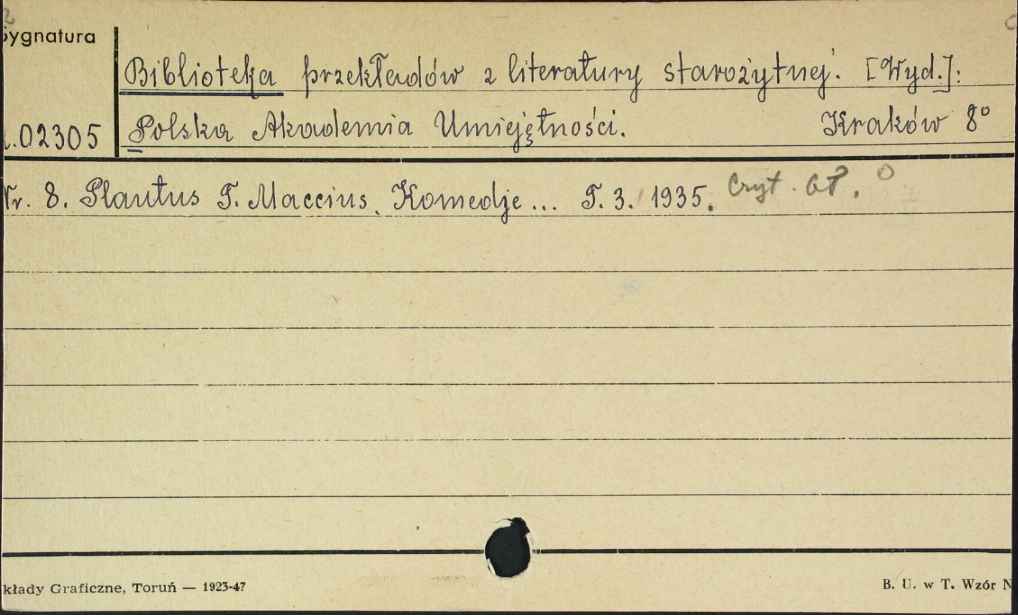 Sygnatura
Biblioteka przekładów z literatury starożytnej. [Wyd.]:
.02305 Polska Akademia Umiejętności. Kraków 8°
Nr. 8. Plautus T. Maccius, Komedje ... T. 3. 1935. Czyt.
kłady Graficzne, Toruń — 1923-47
B. U. w T. Wzór N